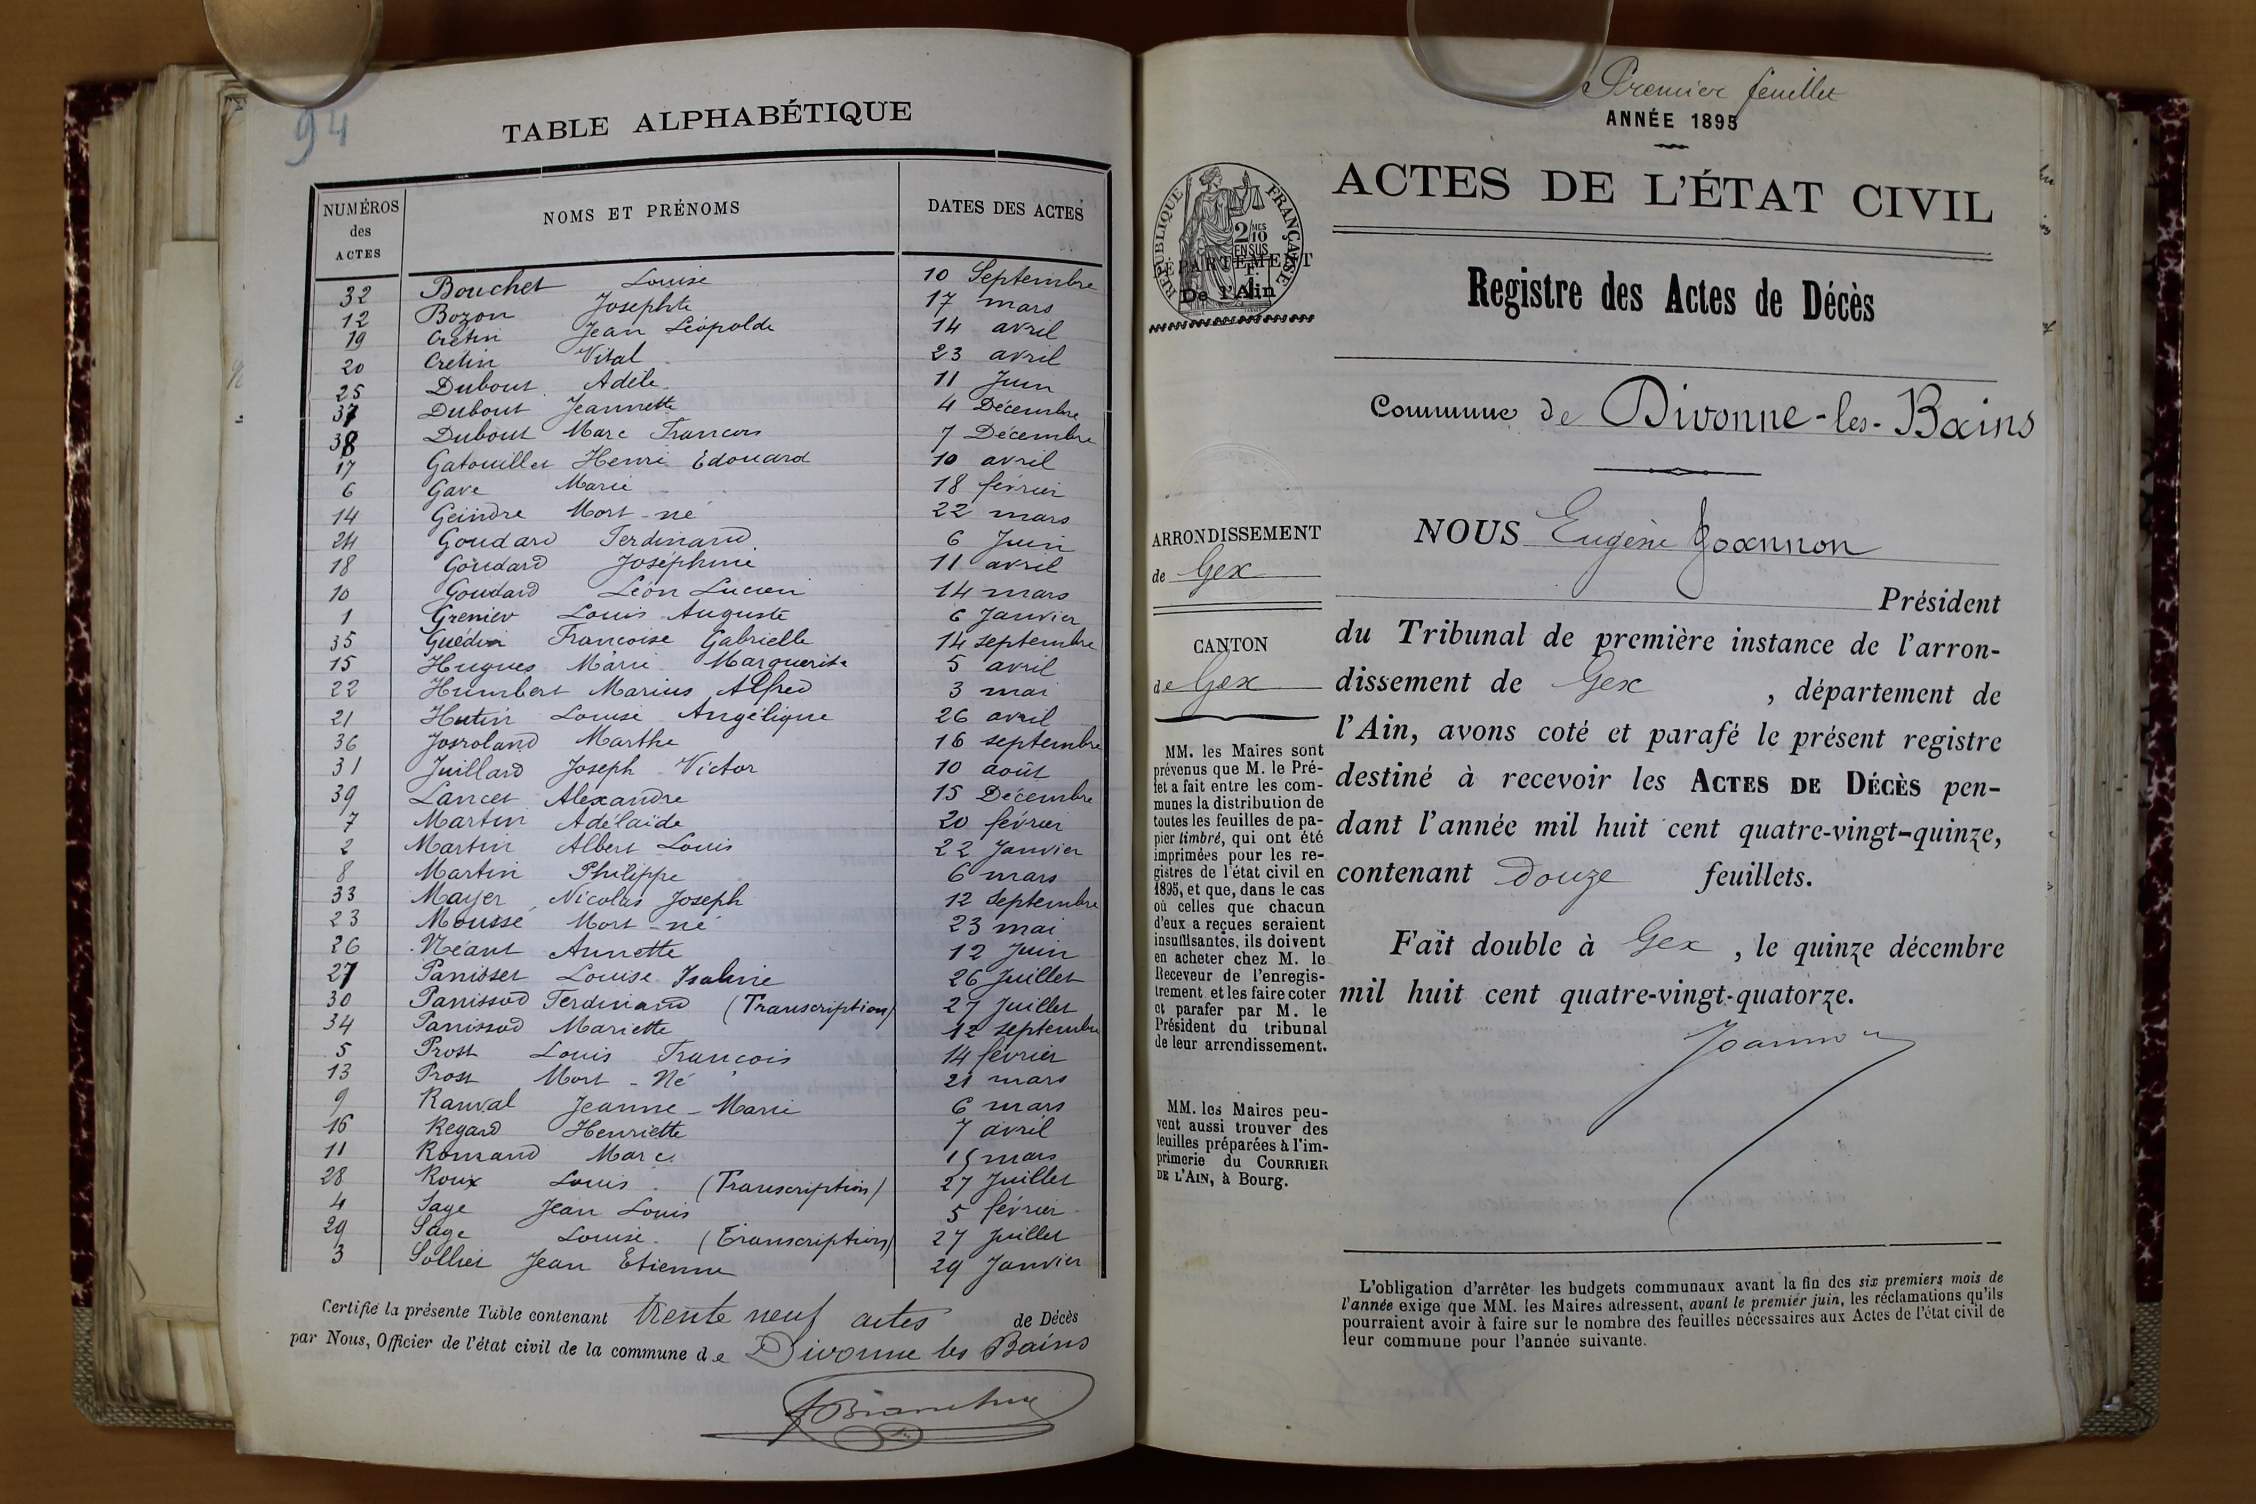 94
TABLE ALPHABÉTIQUE
NUMÉROS des ACTES NOMS ET PRÉNOMS DATES DES ACTES
32 Bouchet Louise 10 Septembre
12 Bozon Josephte 17 mars
19 Crétin Jean Léopolde 14 avril
20 Cretin Vital 23 avril
25 Dubout Adèle 11 Juin
37 Dubout Jeannette 4 Décembre
38 Dubout Marc François 7 Décembre
17 Gatouillet Henri Edouard 10 avril
6 Gave Marie 18 février
14 Geindre Mort-né 22 mars
24 Goudard Ferdinand 6 Juin
18 Goudard Joséphine 11 avril
10 Goudard Léon Lucien 14 mars
1 Grenier Louis Auguste 6 Janvier
35 Guédin Françoise Gabrielle 14 septembre
15 Hugues Marie Marguerite 5 avril
22 Humbert Marius Alfred 3 mai
21 Hutin Louise Angélique 26 avril
36 Josroland Marthe 16 septembre
31 Juillard Joseph Victor 10 août
39 Lancet Alexandre 15 Décembre
7 Martin Adélaïde 20 février
2 Martin Albert Louis 22 Janvier
8 Martin Philippe 6 mars
33 Mayer Nicolas Joseph 12 Septembre
23 Moussé Mort-né 23 mai
26 Néant Annette 12 Juin
27 Panisset Louise Isaline 26 Juillet
30 Panissod Ferdinand (Transcription) 27 Juillet
34 Panissod Mariette 12 septembre
5 Prost Louis François 14 février
13 Prost Mort-Né 21 mars
9 Ranval Jeanne-Marie 6 mars
16 Regard Henriette 7 avril
11 Romand Marc 15 mars
28 Roux Louis (Transcription) 27 Juillet
4 Sage Jean Louis 5 février
29 Sage Louise (Transcription) 27 Juillet
3 Sollier Jean Etienne 29 Janvier
Certifié la présente Table contenant trente neuf actes de Décès
par Nous, Officier de l'état civil de la commune de Divonne les Bains
Premier feuillet
ANNÉE 1895
RÉPUBLIQUE FRANÇAISE
2/10 MES
EN SUS
DÉPARTEMENT
De l'Ain
ACTES DE L'ÉTAT CIVIL
Registre des Actes de Décès
Commune de Divonne-les-Bains
ARRONDISSEMENT
de Gex
CANTON
de Gex
MM. les Maires sont
prévenus que M. le Pré-
fet a fait entre les com-
munes la distribution de
toutes les feuilles de pa-
pier timbré, qui ont été
imprimées pour les re-
gistres de l'état civil en
1895, et que, dans le cas
où celles que chacun
d'eux a reçues seraient
insuffisantes, ils doivent
en acheter chez M. le
Receveur de l'enregis-
trement et les faire coter
et parafer par M. le
Président du tribunal
de leur arrondissement.
MM. les Maires peu-
vent aussi trouver des
feuilles préparées à l'im-
primerie du COURRIER
DE L'AIN, à Bourg.
NOUS Eugène Joannon
Président
du Tribunal de première instance de l'arron-
dissement de Gex, département de
l'Ain, avons coté et parafé le présent registre
destiné à recevoir les ACTES DE DÉCÈS pen-
dant l'année mil huit cent quatre-vingt-quinze,
contenant douze feuillets.
Fait double à Gex, le quinze décembre
mil huit cent quatre-vingt-quatorze.
Joannon
L'obligation d'arrêter les budgets communaux avant la fin des six premiers mois de
l'année exige que MM. les Maires adressent, avant le premier juin, les réclamations qu'ils
pourraient avoir à faire sur le nombre des feuilles nécessaires aux Actes de l'état civil de
leur commune pour l'année suivante.